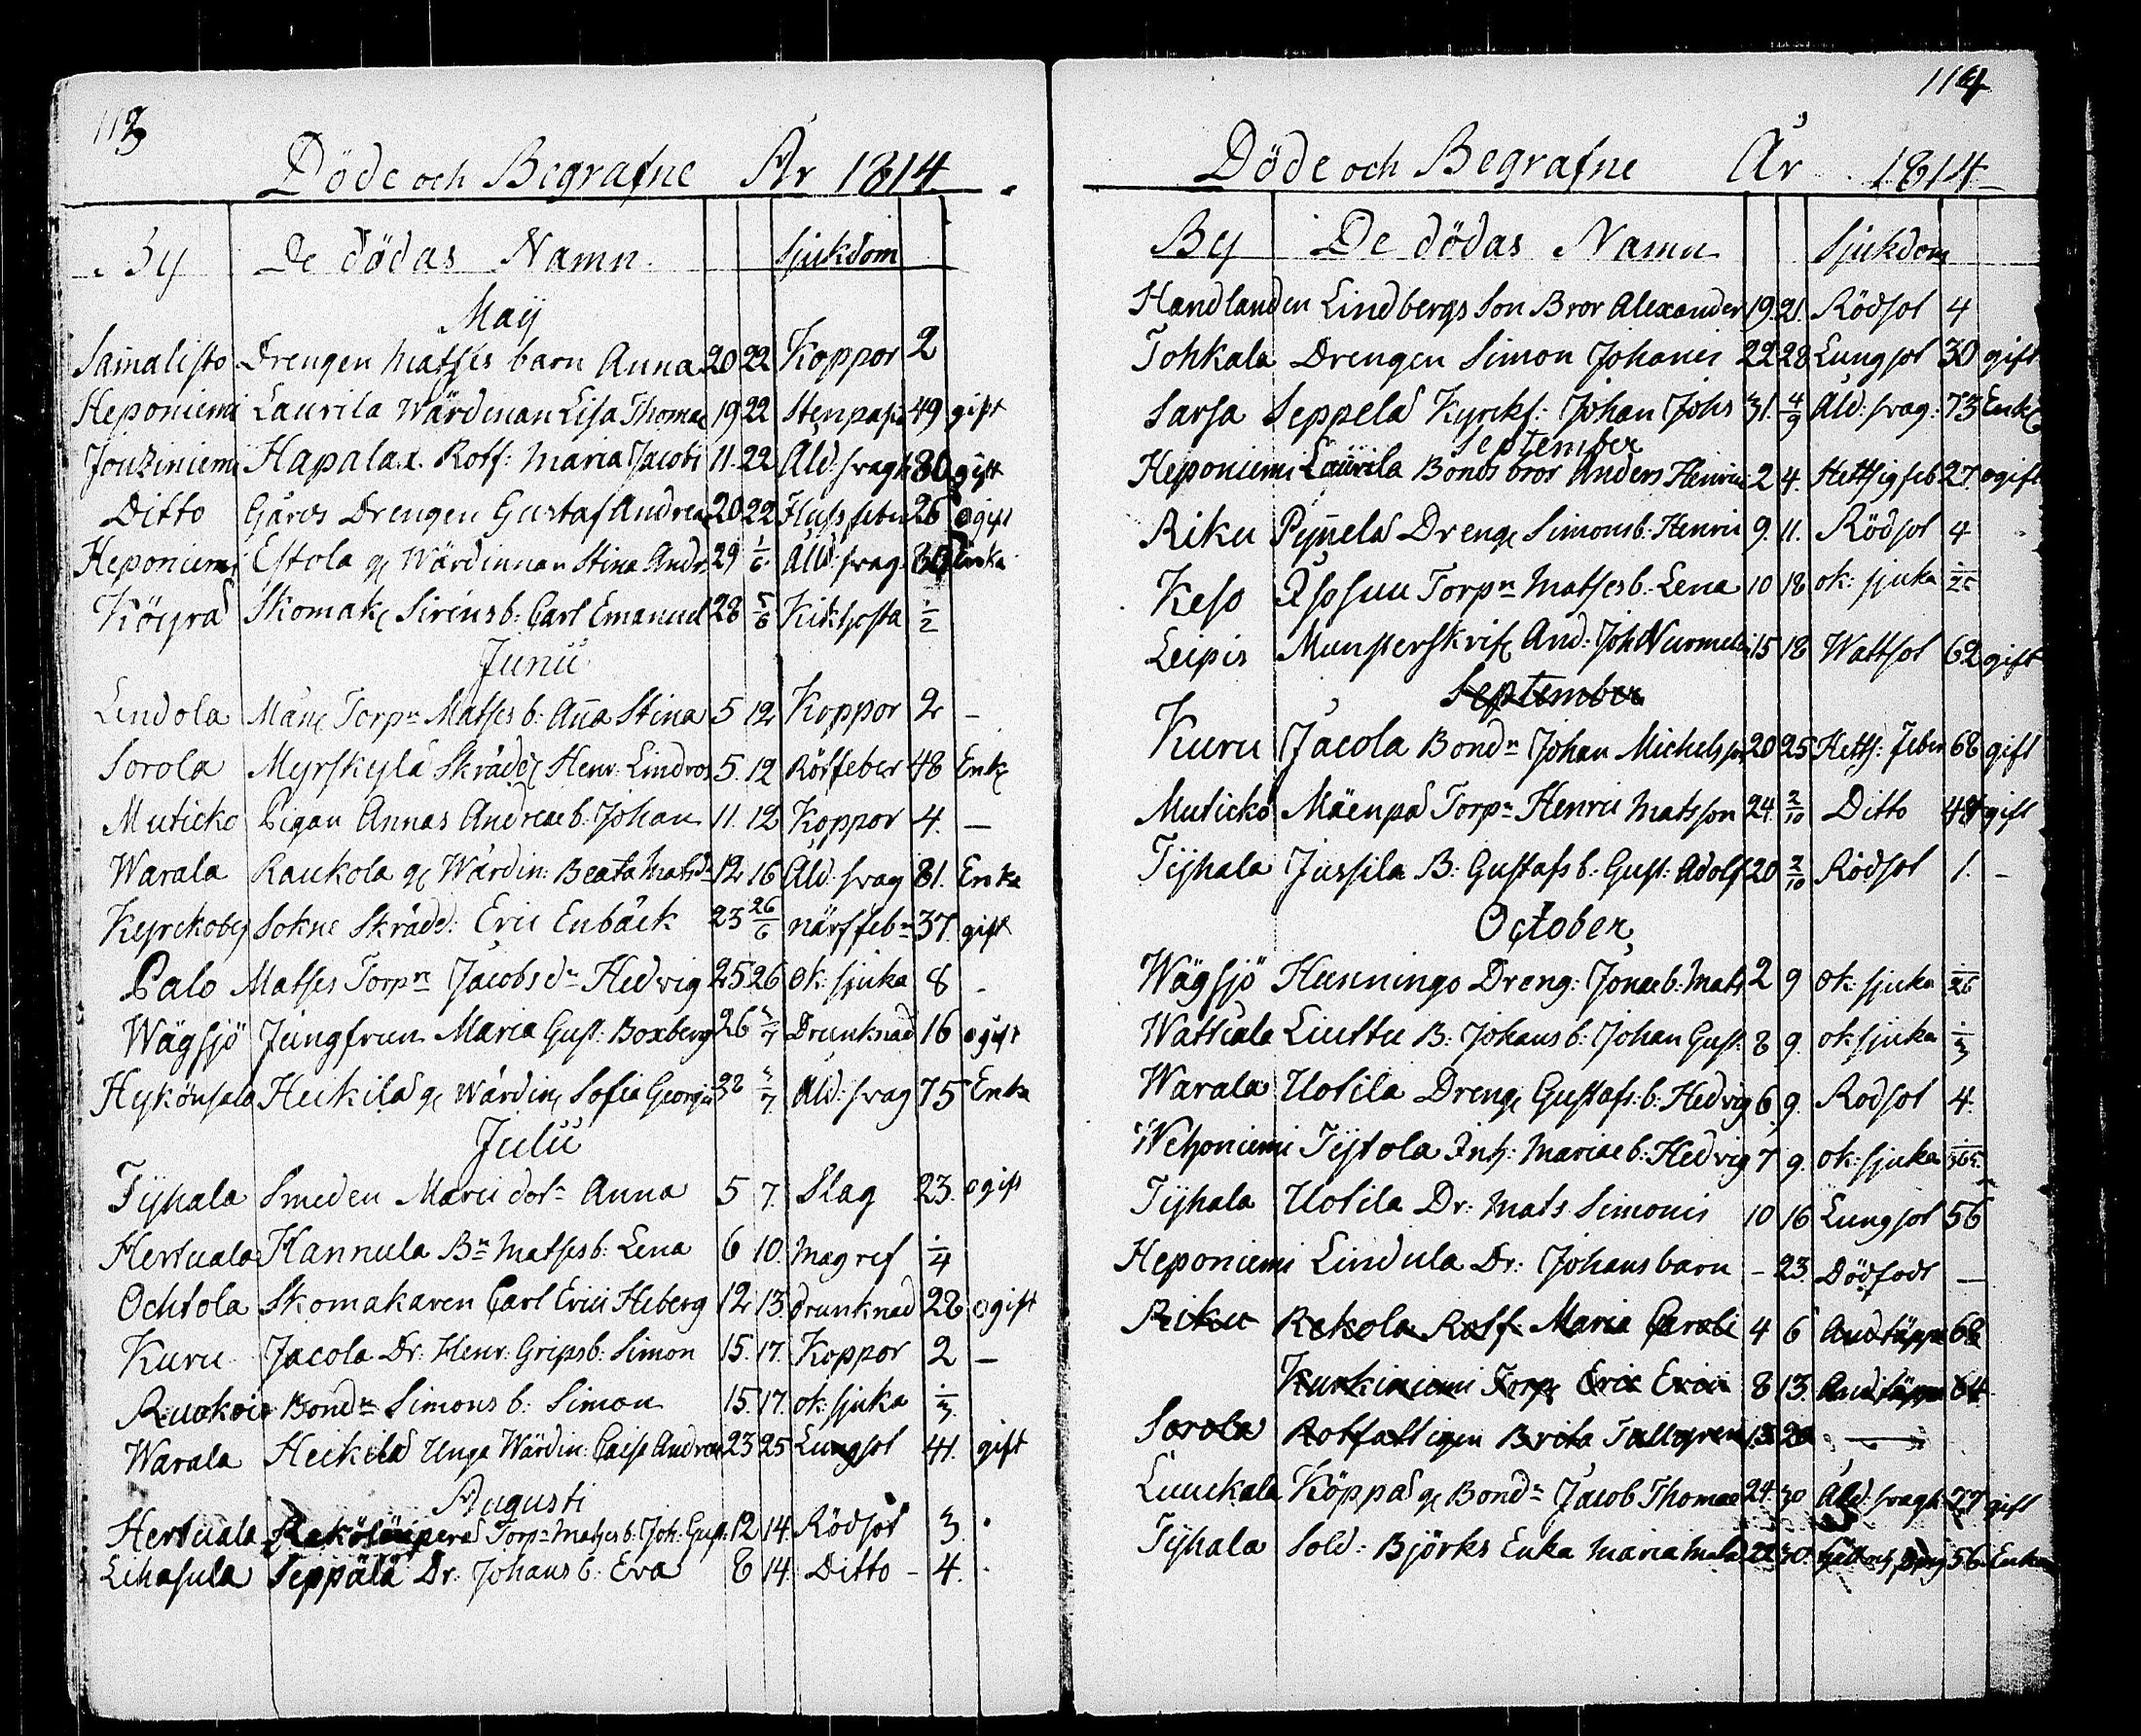 113
Döde och Begrafne År 1814
By De dödas Namn Sjukdom
Maÿ
Samalisto Drengen Matsses barn Anna 20 22 Koppor 2
Heponiemi Laurila Wärdinan Lisa Thomae 19 22 49 gift
Jouziniemi Hapala Rotf: Maria Jacobi 11. 22 Ald: svagh 80 gift
Ditto Gårds Drengen Gustaf Andreae 20 22 26 ogift
Heponiemi Estola Wärdinnan Stina Andr: 29 1/6 Åld: svag Enka
Köÿrä Skomak Sirens b: Carl Emanuel 28 5/6 Kikhosta 1/2
Junii
Lendola Torpn Matses b: Aña Stina 5 12 Koppor 2 –
Sorola Myrskylä Skrädd Henr: Lindros 5. 12 Rötfeber 48 Enk
Muticko Pigan Annas Andreae b: Johan 11. 12 Koppor 4. –
Warala Raukola Wärdin: Beata Matsdr 12 16 Ald: svag 81. Enka
Kyrckoby Sokne Skrädd: Eric Enbäck 23 26/6 närffebr 37. gift
Palo Matses Torpn Jacobs dr Hedvig 25 26 ok: sjuka 8 -
Wägsjö Jungfrun Maria Gust. Boxberg 26 3/7 Drunknad 16 ogift
Hykönsala Heikilä Wärdin Sofia Georgii 28 3/7. Ald: svag 75 Enka
Julii
Tÿhala Smeden dotr Anna 5 7. Slag 23. ogift
Hertuala Hannula Bn Matses b: Lena 6 10. Magref 1/4
Ochtola Skomakaren Carl Erici Heberg 12 13. drunknad 28 ogift
Kuru Jacola Dr: Henr: Grips b: Simon 15. 17. Koppor 2 –
Bondn Simons b: Simon 15. 17. ok: sjuka 1/3.
Warala Heikilä Unga Wärdin: Caisa Andreae 23 25 Lungsot 41. gift
Augusti
Hertuala Torpn Matses b: Joh: Gust. 12 14. Rödsot 3.
Lihasula Seppälä Dr: Johans b: Eva 8 14. Ditto – 4.
114
Döde och Begrafne År 1814
By De dödas Namn Sjukdom
Handlanden Lindbergs Son Bror Alexander 19. 21. Rödsot 4
Tohkala Drengen Simon Johanis 22 28 Lungsot 30 gift
Sarsa Seppelä Kyrckf: Johan Johs 31. 4/9 Åld: svag: 73 Enkl
September
Heponiemi Laurila Bonds bror Anders Henrici 2 4. Hettsigfeb 27. ogift
Riku Pynnelä Dreng Simons b: Henric 9. 11. Rödsot 4
Keso Torpn Matses b: Lena 10 18 ok: sjuka
Leipis Munsterskrif And: Joh: Nurmelin 15 18 Wattsot 62 gift
September
Kuru Jacola Bondn Johan Michelsson 20 25 Hetts: Feber 68 gift
Muticko Mäenpä Torpn Henric Matsson 24. 2/10 Ditto 48 gift
Tÿhala Jussila B: Gustafs b: Gust: Adolf 20 2/10 Rödsot 1. –
October
Wägsjö Hunnings Dreng: Jonae b: Mats 2 9 ok: sjuka 1/26
Wattuala Liuttu B: Johans b: Johan Gust: 8 9. ok: sjuka 1/3
Warala Uotila Dreng Gustafs: b: Hedvig 6. 9. Rodsot 4.
Wehoniemi Tÿstola Inh: Mariae b: Hedvig 7 9. ok: sjuka
Tÿhala Uotila Dr: Mats Simonis 10 16 Lungsot 56
Heponiemi Lindula Dr: Johans barn – 23. Dödfödt –
Riku Rekola Rotf Maria Caroli 4 6 Andtäppa 68
Kurkiniemi Torp Eric Erici 8 13. Andtäppa 64
Sorola Rotfattigen Brita Tallogren 13 20
Luuckala Köppä Bondn Jacob Thomae 24. 30 Åld: svagh 77 gift
Tÿhala Sold: Björks Enka Maria Mats 22 30. 56. Enka